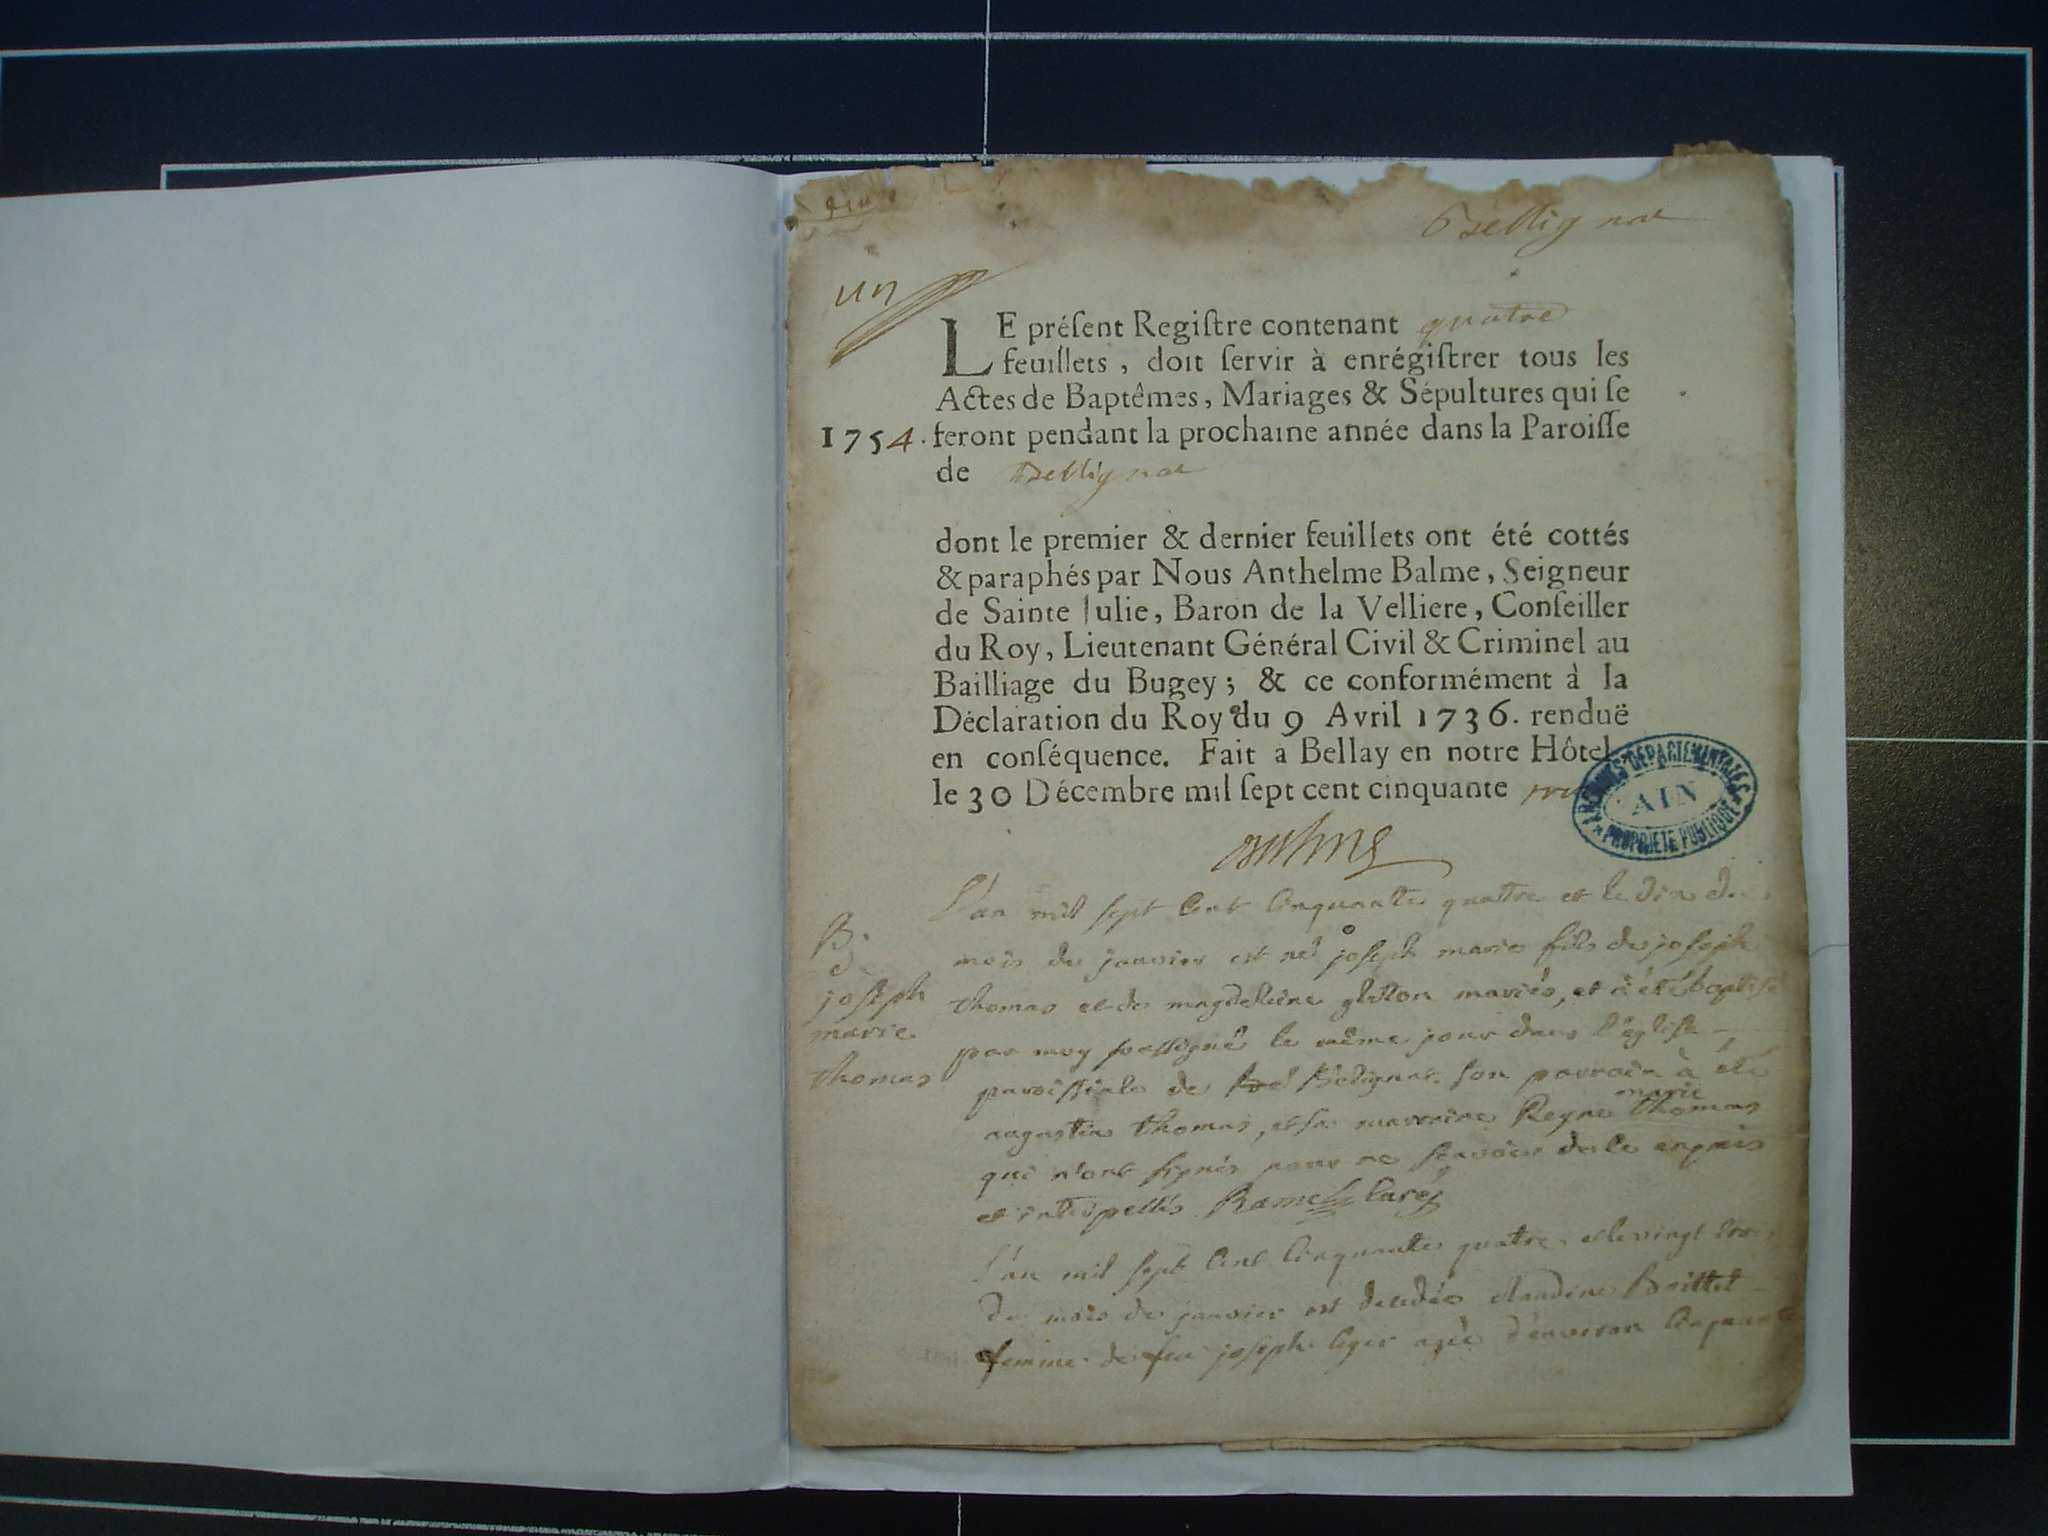 Bellignat
un
LE préſent Regiſtre contenant quatre
feuillets, doit ſervir à enrégiſtrer tous les
Actes de Baptêmes, Mariages & Sépultures qui ſe
1754. feront pendant la prochaine année dans la Paroiſſe
de Bellignat
dont le premier & dernier feuillets ont été cottés
& paraphés par Nous Anthelme Balme, Seigneur
de Sainte Julie, Baron de la Velliere, Conſeiller
du Roy, Lieutenant Général Civil & Criminel au
Bailliage du Bugey; & ce conformément à la
Déclaration du Roy du 9 Avril 1736. renduë
en conſéquence. Fait a Bellay en notre Hôtel
le 30 Décembre mil ſept cent cinquante
ARCHIVES DEPARTEMENTALES
AIN
PROPRIETE PUBLIQUE
B.
joseph
marie
thomas
L'an mil sept Cent Cinquante quatre et le dix du
mois de janvier est né joseph marie fils de joseph
thomas et de magdeleine mariés, et a été baptisé
par moy soussigné le même jour dans l'église
paroissiale de Belignat. son parrain à été
augustin thomas, et sa marraine Reyne marie thomas
qui n'ont signés pour ne sçavoir de ce enquis
et interpellés Ramel Curé
L'an mil sept Cent Cinquante quatre et le vingt trois
du mois de janvier est decedée claudine
femme de feu joseph leger agée d'environ Cinquante